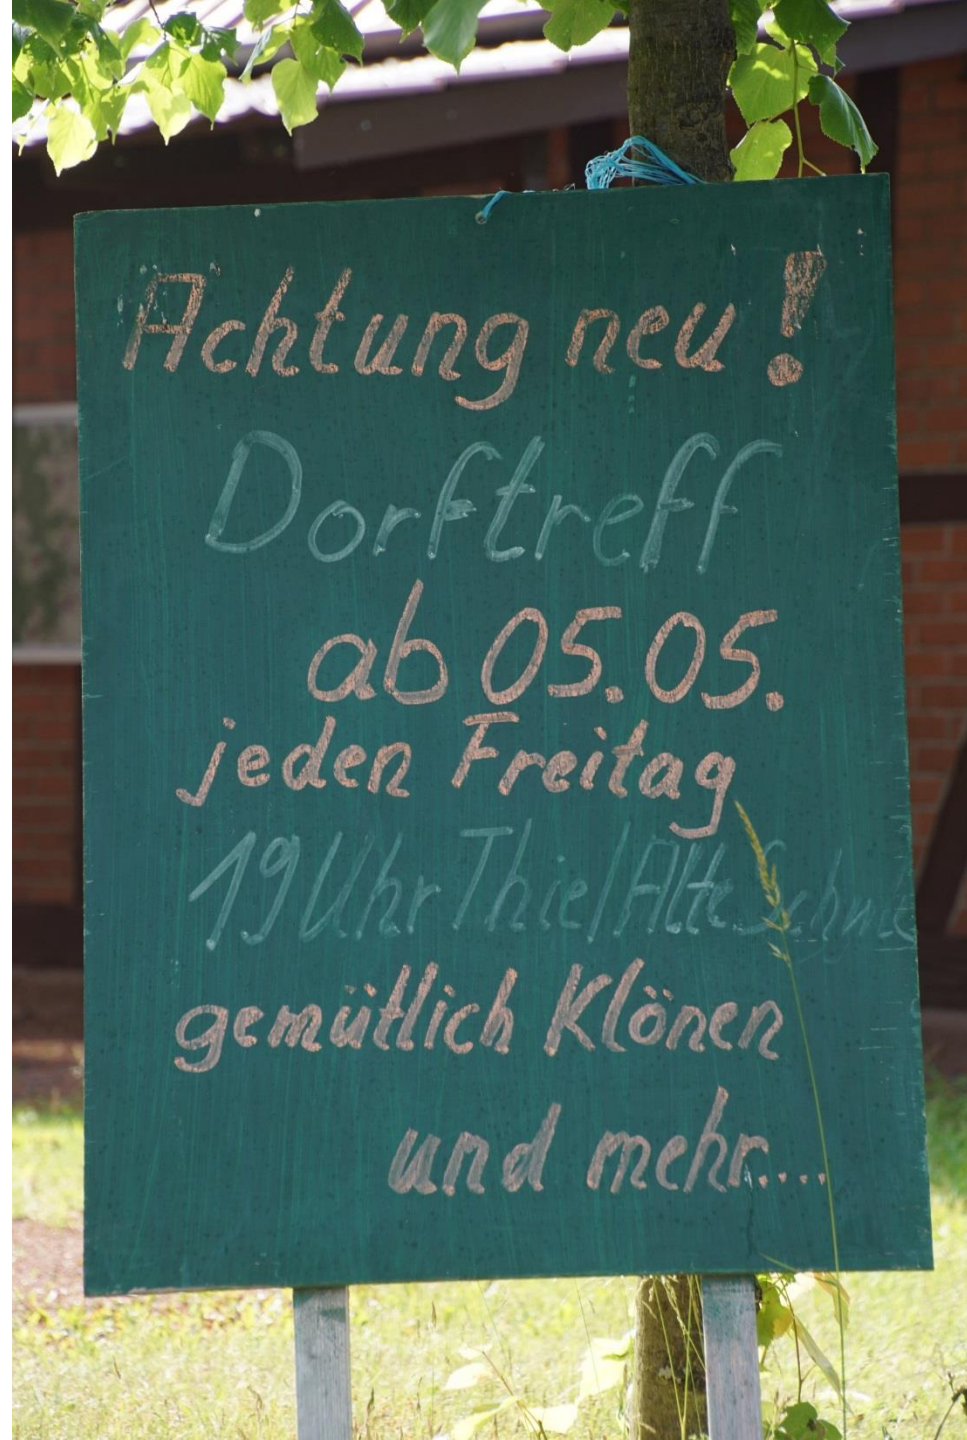 Achtung neu!
Dorftreff
ab 05.05.
jeden Freitag
19 Uhr Thiel/Alte
gemütlich Klönen
und mehr....